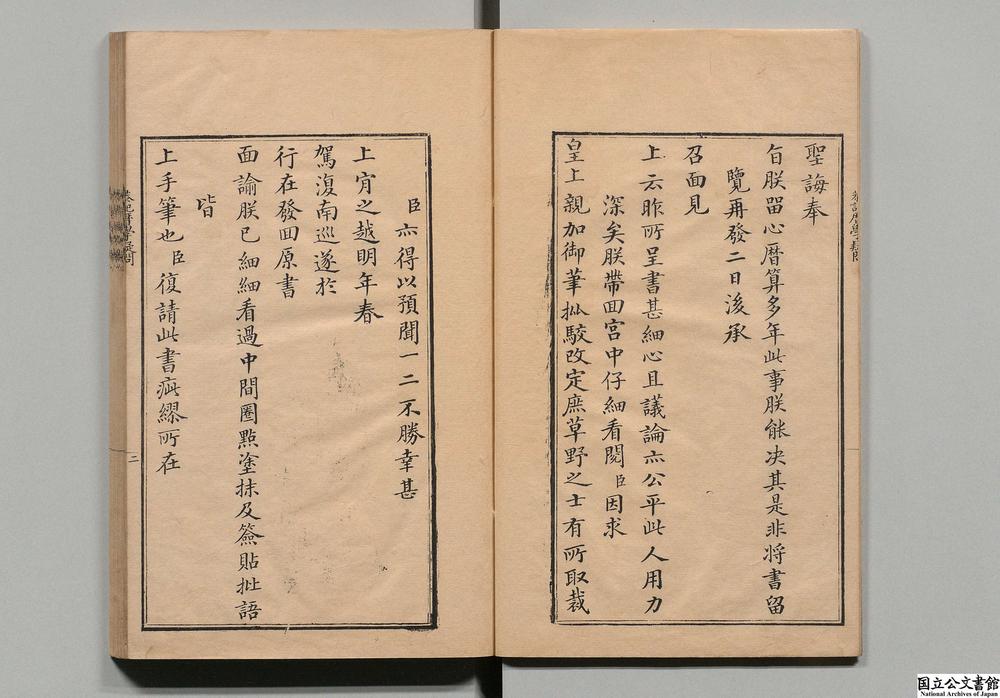 聖誨奉
旨朕留心曆算多年此事朕能决其是非將書留
覽再發二日後承
召面見
上云昨所呈書甚細心且議論亦公平此人用力
深矣朕帶回宮中仔細看閱臣因求
皇上親加御筆批駁改定庶草野之士有所取裁
臣亦得以預聞一二不勝幸甚
上肯之越明年春
駕復南巡遂於
行在發回原書
面諭朕已細細看過中間圈點塗抹及簽貼批語
皆
上手筆也臣復請此書疵繆所在
二
国立公文書館
National Archives of Japan